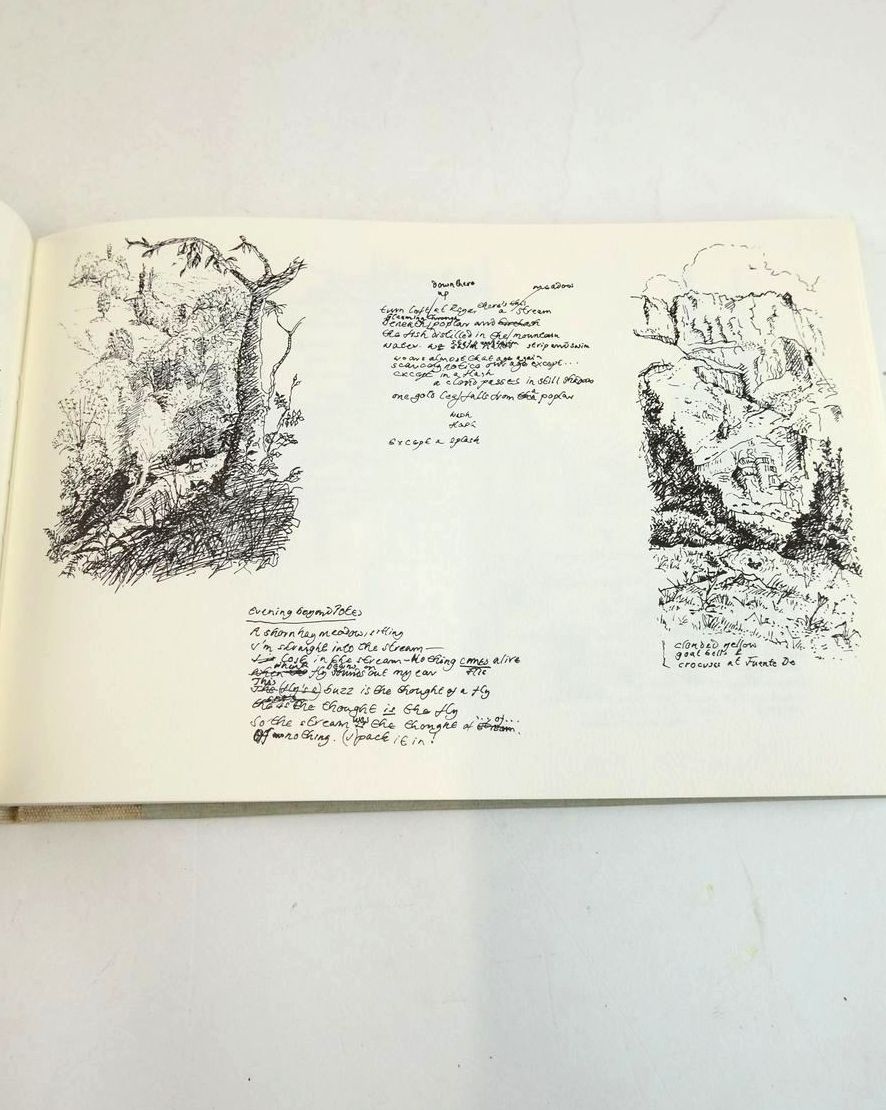 down there
up
meadow
turn left at Roger there's this a stream
gleaming through
beneath poplar and
the fish distilled in the mountain
water strip and swim
we are almost that age again
scarcely notice our age except...
except in a flash
a cloud passes in still
one gold leaf falls from a poplar
hush
flash
except a splash
evening beyond Potes
A shorn hay meadow, sitting
I'm straight into the stream —
lost in the stream — Nothing comes alive
when fly out my ear
This
The (fly's) buzz is the thought of a fly
the thought is the fly
So the stream was the thought of stream. ... of ...
Of nothing. (I) pack it in!
clouded yellow
goat bells &
crocuses at Fuente De